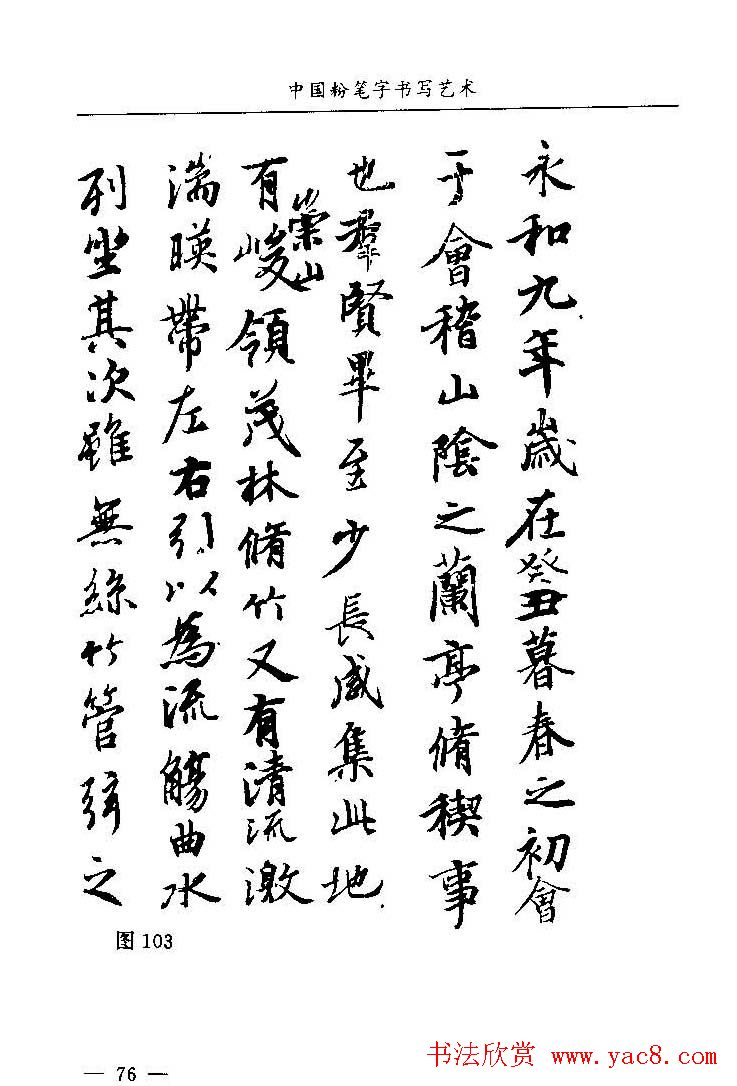 中国粉笔字书写艺术
永和九年歲在癸丑暮春之初會
于會稽山陰之蘭亭脩稧事
也羣賢畢至少長咸集此地
有崇山峻領茂林脩竹又有清流激
湍暎帶左右引以為流觴曲水
列坐其次雖無絲竹管弦之
图103
— 76 —
书法欣赏 www.yac8.com